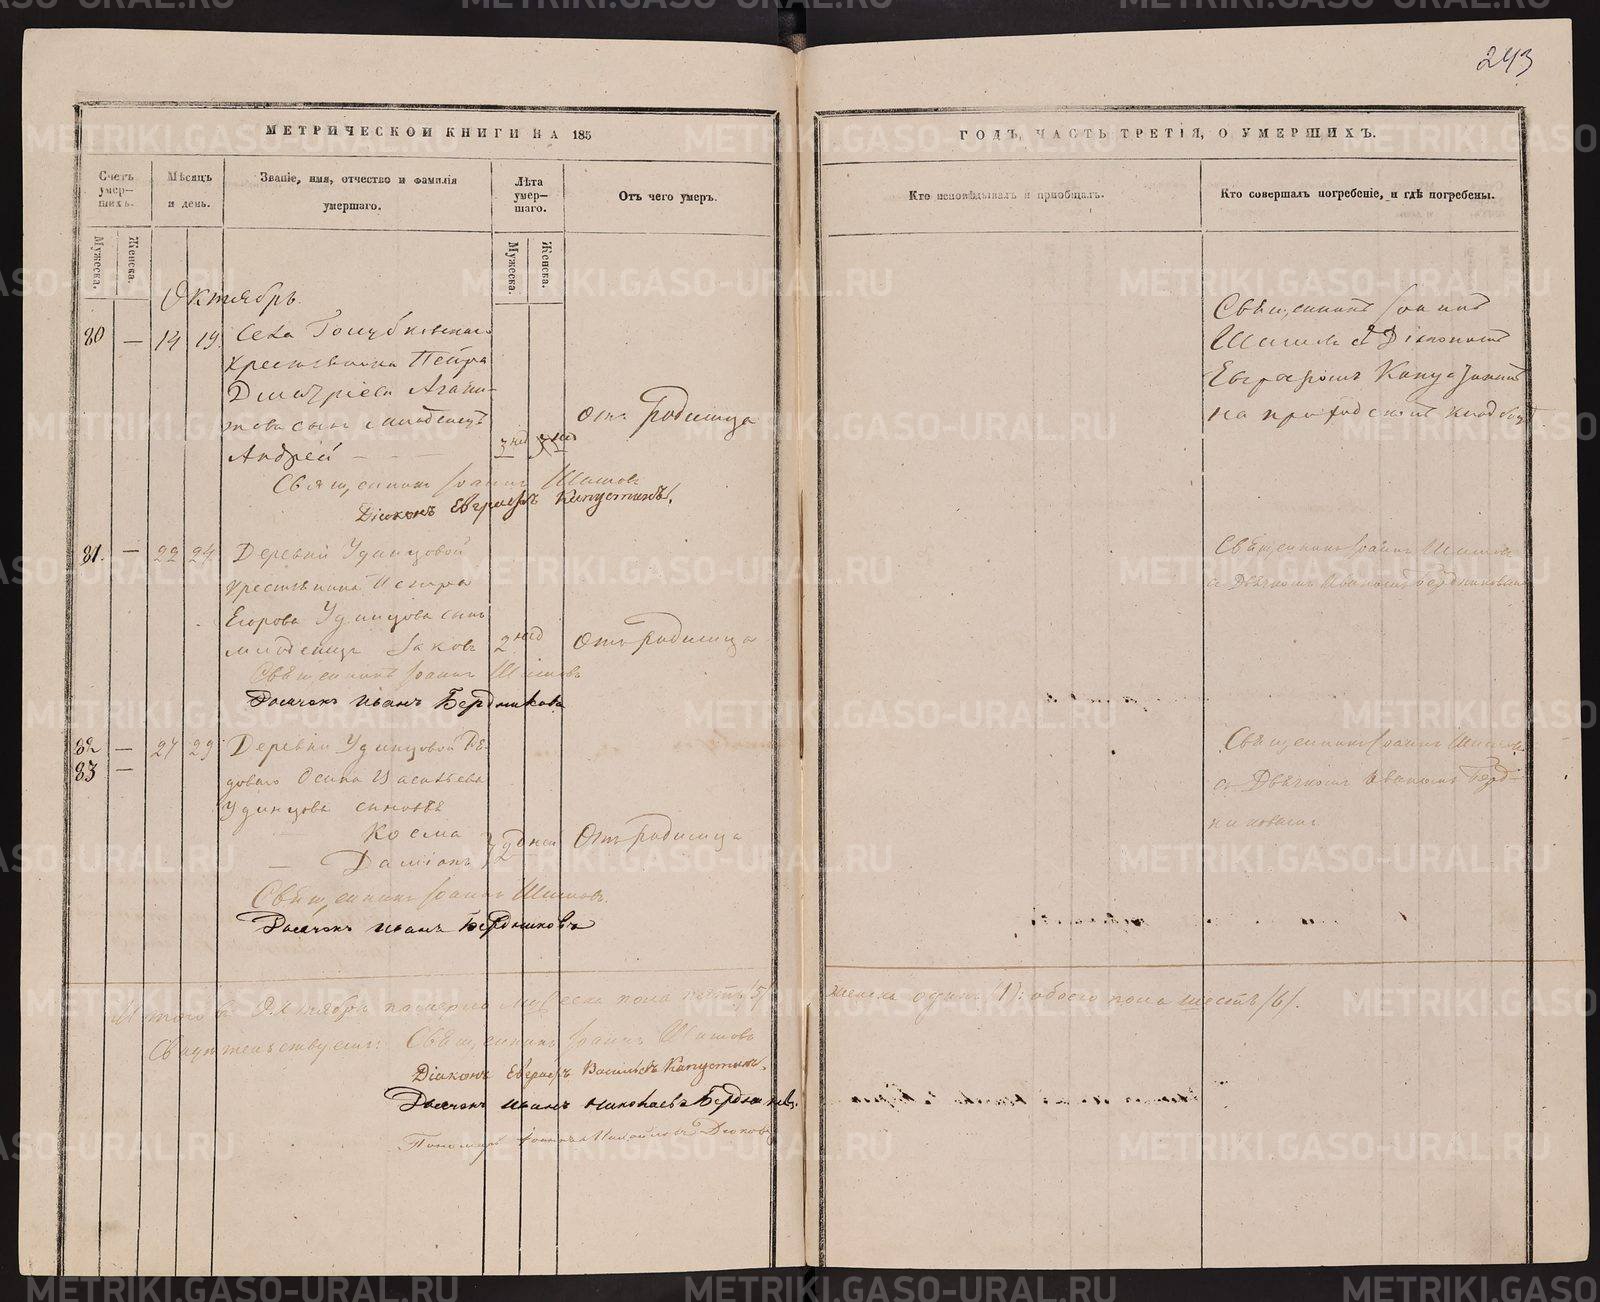 243
МЕТРИЧЕСКОЙ КНИГИ НА 185
ГОДЪ, ЧАСТЬ ТРЕТІЯ, О УМЕРШИХЪ.
Счетъ умер-шихъ.
Мѣсяцъ и день.
Званіе, имя, отчество и фамилія умершаго.
Лѣта умер-шаго.
Отъ чего умеръ.
Кто исповѣдывалъ и пріобщалъ.
Кто совершалъ погребеніе, и гдѣ погребены.
Мужеска.
Женска.
Мужеска.
Женска.
Октябрь.
80 — 14 19 Села Голубковскаго
крестьянина Петра
Димитріева Агапи-
това сынъ младенецъ
Андрей — — — 3 нед
Отъ родимца
Священникъ Іоаннъ Шишовъ
Діаконъ Евграфъ Капустинъ.
Священникъ Іоаннъ
Шишовъ съ Діакономъ
Евграфомъ Капустинымъ
на приходскомъ кладбищ
81. — 22 24 Деревни Удинцовой
крестьянина Петра
Егорова Удинцова сынъ
младенецъ Іаковъ 2 нед Отъ родимца
Священникъ Іоаннъ Шишовъ
Дьячокъ Иванъ Бердниковъ
Священникъ Іоаннъ Шишовъ
съ Дьячкомъ Иваномъ Бердниковымъ
82 — 27 29 Деревни Удинцовой
83 —
Осипа Васильева
Удинцова сыновья
Косма
Даміанъ 2 дней Отъ родимца
Священникъ Іоаннъ Шишовъ.
Дьячокъ Иванъ Бердниковъ
Священникъ Іоаннъ Шишовъ
съ Дьячкомъ Иваномъ Берд-
никовымъ
Итого въ Октябрѣ померло мужеска пола пять /5/ женска одинъ /1/: обоего пола шесть /6/.
Свидѣтельствуемъ: Священникъ Іоаннъ Шишовъ
Діаконъ Евграфъ Васильевъ Капустинъ.
Дьячокъ Иванъ Николаевъ Бердниковъ.
Пономарь
METRIKI.GASO-URAL.RU